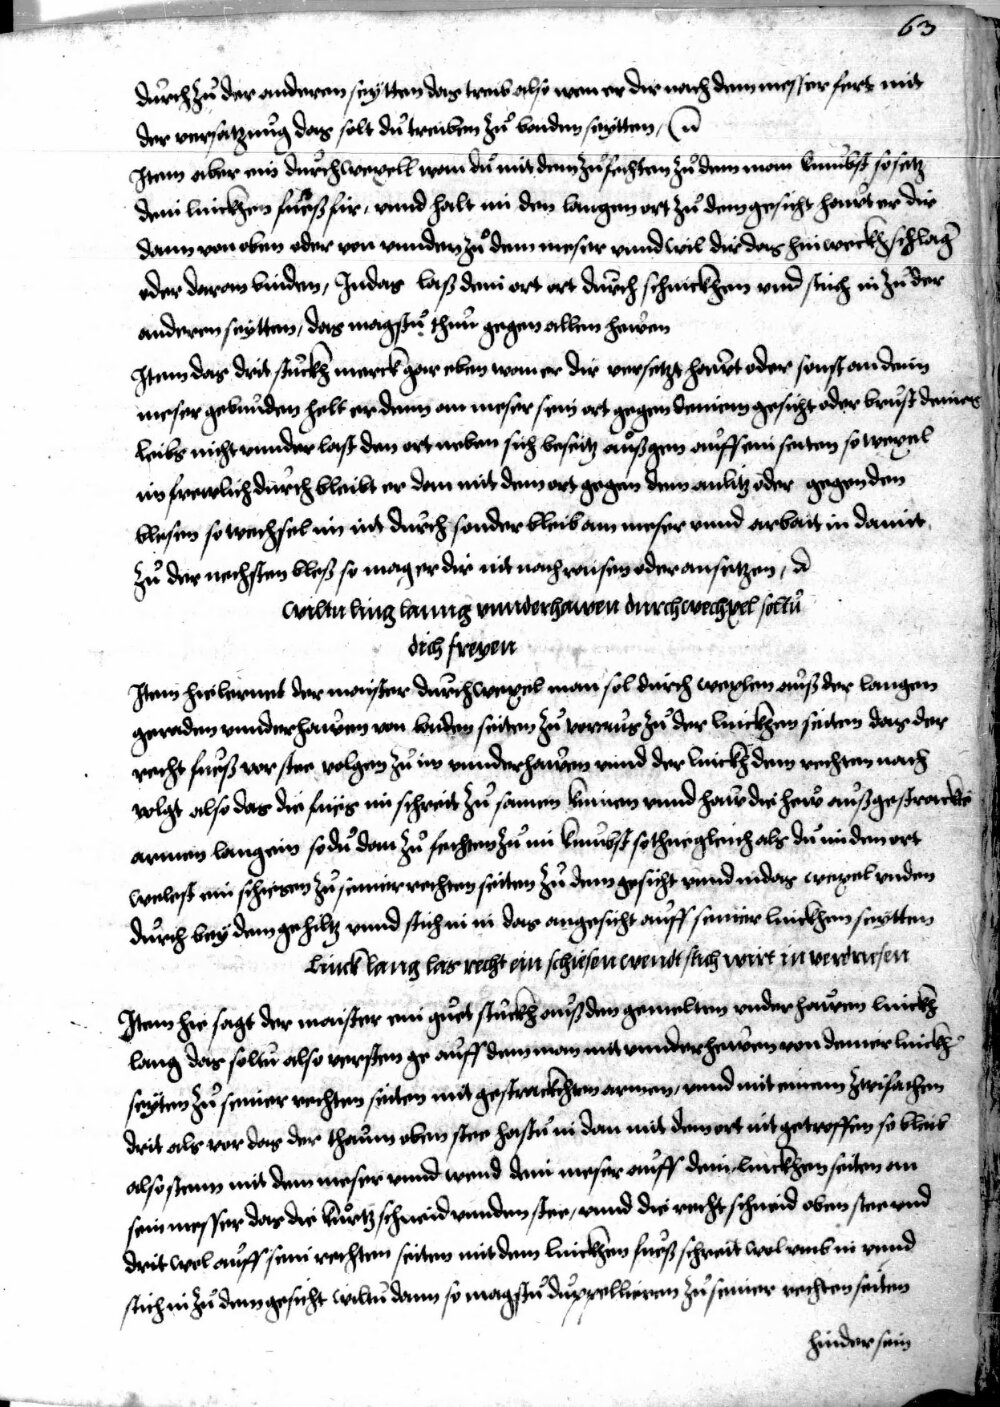 63
durch zů der anderen seÿtten das treib also wen er dir nach dem messer fert mit
der versatzung das solt dů treiben zů baiden seytten,
Item aber ein durchwexell wen dů mit dem zůfechten zů dem man kumbst so setz
dein linckhen fůeß fir, vnnd halt im den langen ort zů dem gesicht hawt er dir
dann von oben oder von vnnden zů dem meser vnnd wil dir das hinweckh schlagn
oder daran binden, Indas laß dein ort ort durch schnickhen vnd stich in zů der
anderen seytten, das magstů thun gegen allen hewen
Item das drit stuckh merck gar eben wan er dir versetzt hawt oder sonst an dein
meser gebunden helt er denn am meser sein ort gegen deinem gesicht oder brust deines
leibs nicht vnnder last den ort neben sich beseitz außgen auff ein seiten so wexel
im frewlich durch bleibt er dan mit dem ort gegen dem anlitz oder gegen den
blesen so wechsel im nit durch sonder bleib am meser vnnd arbait in damit
zů der nechsten bleß so mag er dir nit nachraisen oder ansetzen,
wiltu ling lanng vnnderhawen durchwechxel soltu
dich freyen
Item hie lernet der maister durchwexel man sol durch wexlen auß der langen
geraden vnnderhawen von baiden seiten zů voraus zů der linckhen seiten das der
recht fueß vor stee volgen zů im vnnderhawen vnnd der linckh dem rechten nach
volgt also das die fues im schreit zů samen kumen vnnd haw die hew außgestrackte
armen lang ein so dů dan zů fechten zů im kumbst so thue gleich als dů im den ort
welest ein schiesen zů seiner rechten seiten zů dem gesicht vnnd indas wexel vnden
durch bey dem gehiltz vnnd stich im in das angesicht auff seiner linckhen seytten
Linck lang las recht ein schiesen wendt stich wirt in verdriesen
Item hie sagt der maister ein guet stuckh auß den gemelten vnderhawen linckh
lang das soltu also versten ge auff den man mit vnnderhewen von deiner linckh
seyten zů seiner rechten seiten mit gestrackhten armen, vnnd mit einem zwifachen
drit als vor das der thaum oben stee hastu in dan mit dem ort nit getroffen so bleib
also stenn mit dem meser vnnd wend dein meser auff dein linckhen seiten an
sein messer das die kurtz schneid vnnden stee, vnnd die recht schneid oben stee vnd
drit wol auff sein rechten seiten mit dem linckhen fueß schreit wol vmb in vnnd
stich in zů dem gesicht wiltu dann so magstu duppellieren zů seiner rechten seiten
hinder sein